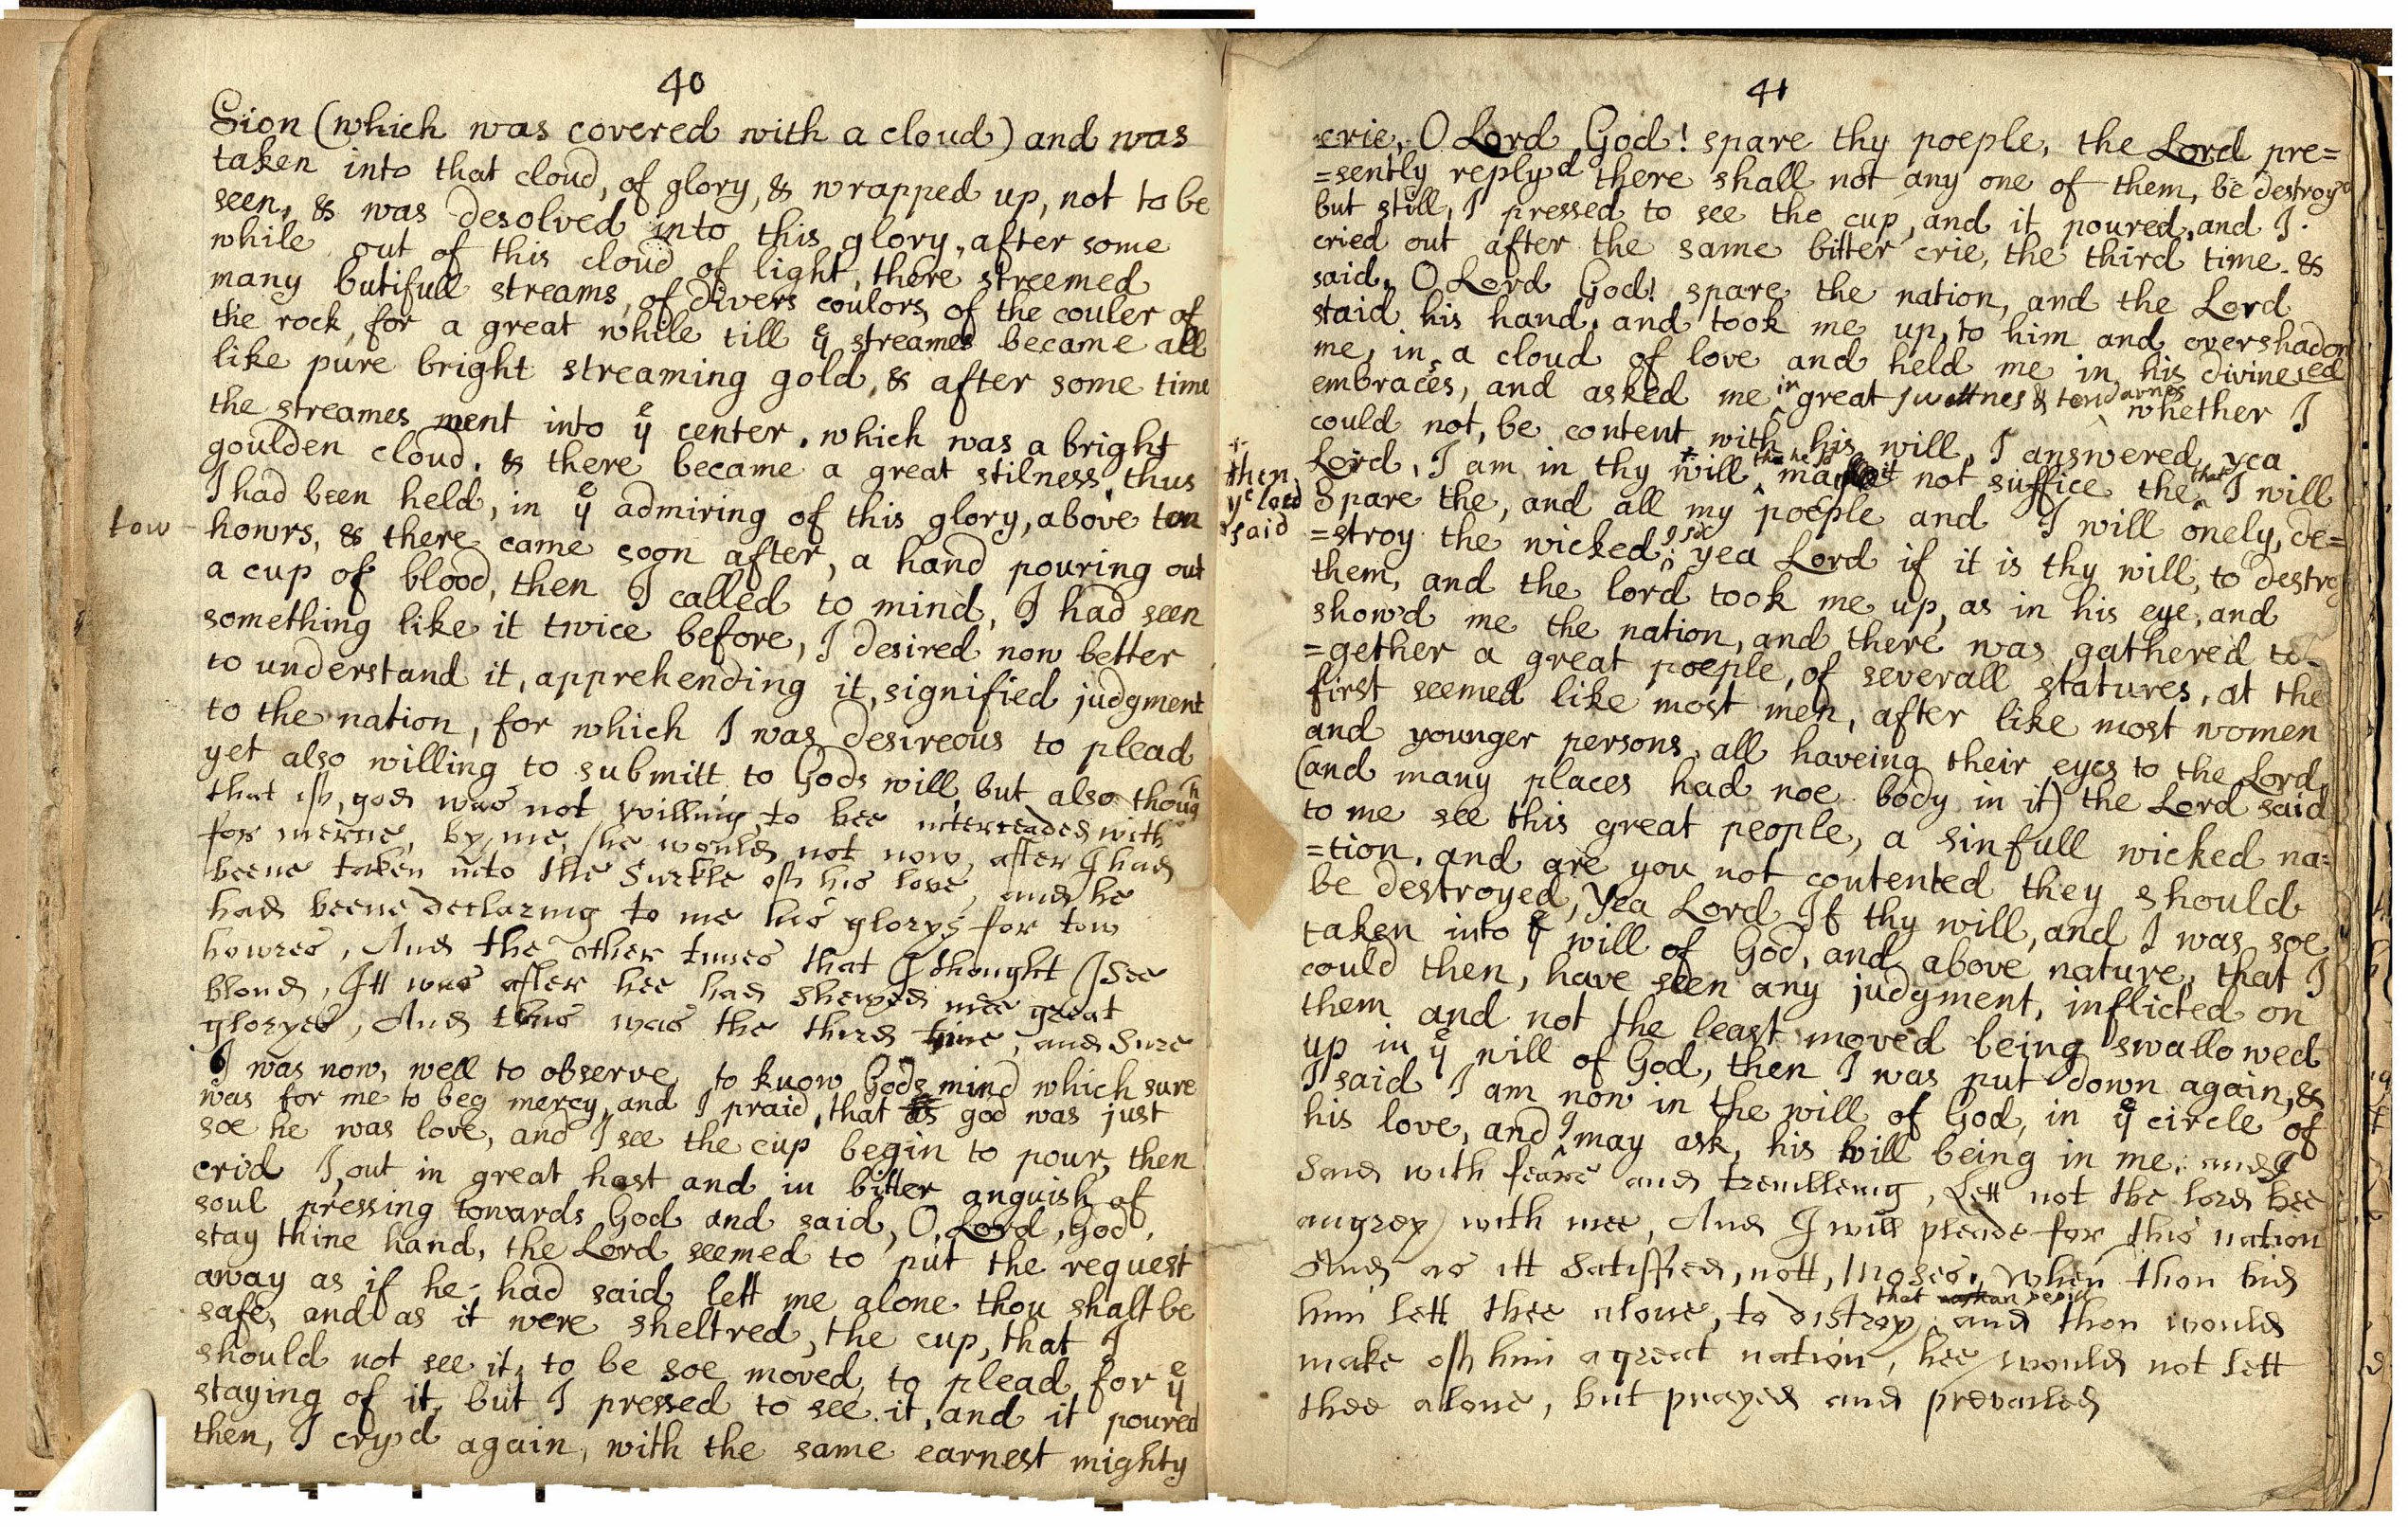 40
Sion (which was covered with a cloud) and was
taken into that cloud, of glory, & wrapped up, not to be
seen, & was desolved into this glory, after some
while out of this cloud of light, there streemed
many butifull streams, of divers coulors, of the couler of
the rock, for a great while till yᵉ streames became all
like pure bright streaming gold, & after some time
the streames went into yᵉ center, which was a bright
goulden cloud, & there became a great stilness, thus
I had been held, in yᵉ admiring of this glory, above
tow
howrs, & there came soon after, a hand pouring out
a cup of blood, then I called to mind, I had seen
something like it twice before, I desired now better
to understand it, apprehending it, signified judgment
to the nation, for which I was desireous to plead
yet also willing to submitt to Gods will, but also though
that if, god was not willing, to bee interceaded with
for mercie, by me, he would not now, after I had
beene taken into the Surkle off his love, and he
had beene declaring to me his glorys for tow
howres, And the other times that I thought I see
bloud, Itt was after hee had shewed mee great
gloryes, And this was the third time, and Sure
I was now, well to observe, to know Gods mind which sure
was for me to beg mercy, and I praid, that as god was just
soe he was love, and I see the cup begin to pour, then
crid I, out in great hast and in bitter anguish of
soul pressing towards God and said, O, Lord, God,
stay thine hand, the Lord seemed to put the request
away as if he had said lett me alone thou shalt be
safe, and as it were sheltred, the cup, that I
should not see it, to be soe moved, to plead for yᵉ
staying of it, but I pressed to see it, and it poured
then, I cry'd again, with the same earnest mighty
41
crie, O Lord God! spare thy poeple, the Lord pre=
=sently reply'd there shall not any one of them, be destroy'd
but still, I pressed to see the cup, and it poured, and I
cried out after the same bitter crie, the third time, &
said, O Lord God! spare the nation, and the Lord
staid his hand, and took me up, to him and overshadow
ed
me, in a cloud of love and held me in his divine
embraces, and asked me in great swettnes & tendarnes whether I
could not, be content, with his will, I answered yea
Lord, I am in thy will, not suffice the that I will
then
yᵉ lord
said
Spare the, and all my poeple and I will onely, de=
=stroy the wicked; I sd yea Lord if it is thy will, to destroy
them, and the lord took me up, as in his eye, and
show'd me the nation, and there was gathered to=
=gether a great poeple, of severall statures, at the
first seemed like most men, after like most women
and younger persons, all haveing their eyes to the Lord,
(and many places had noe body in it) the Lord said
to me see this great people, a sinfull wicked na=
=tion, and are you not contented they should
be destroyed, Yea Lord If thy will, and I was soe
taken into yᵉ will of God, and above nature, that I
could then, have seen any judgment, inflicted on
them and not the least moved being swallowed
up in yᵉ will of God, then I was put down again, &
I said I am now in the will of God, in yᵉ circle of
his love, and I may ask, his will being in me, and I
Said with feare and trembleing, Lett not the lord bee
angrey with mee, And I will pleade for this nation
And as itt Satisffied, nott, Moses, when thou bid
him lett thee alone, to distroy that and thou would
make off him a great nation, hee would not lett
thee alone, but prayed and prevailed